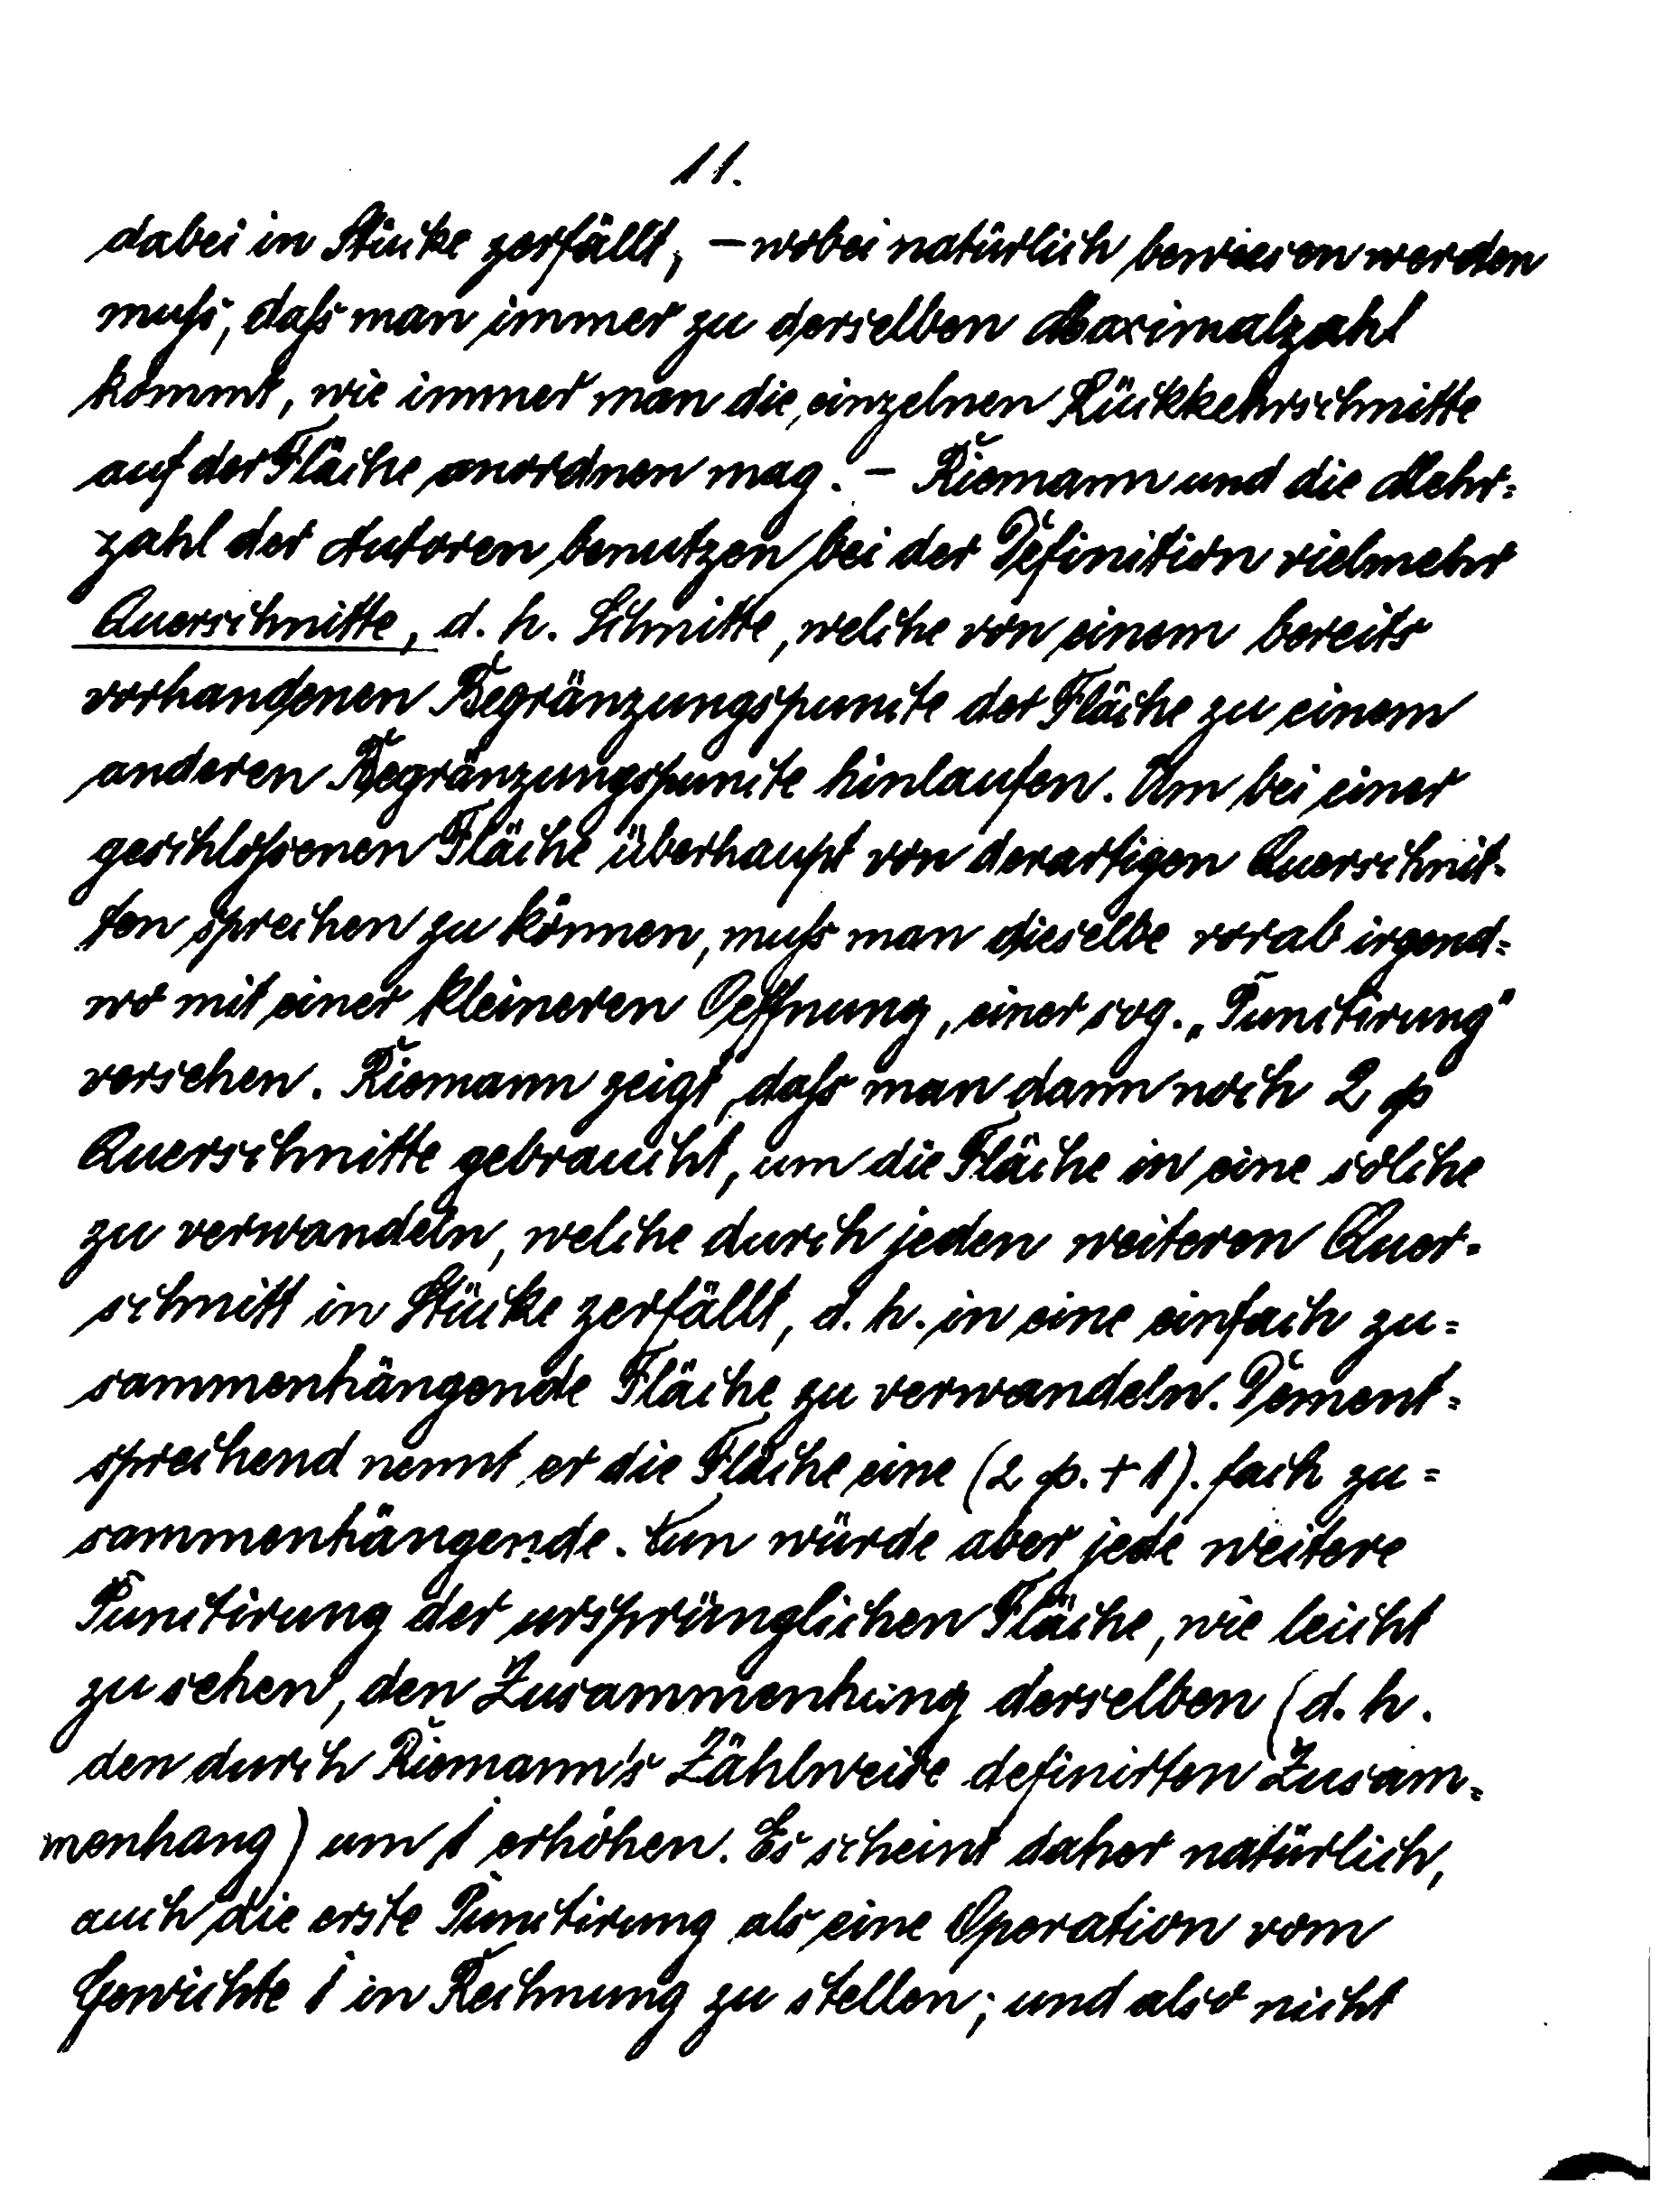 11.
dabei in Stücke zerfällt, – wobei natürlich bewiesen werden
muſs, daſs man immer zu derselben Maximalzahl
kommt, wie immer man die einzelnen Rückkehrschnitte
auf der Fläche anordnen mag. – Riemann und die Mehr=
zahl der Autoren benutzen bei der Definition vielmehr
Querschnitte, d. h. Schnitte, welche von einem bereits
vorhandenen Begränzungspuncte der Fläche zu einem
anderen Begränzungspuncte hinlaufen. Um bei einer
geschloſsenen Fläche überhaupt von derartigen Querschnit-
ten sprechen zu können, muſs man dieselbe vorab irgend=
wo mit einer kleineren Oeffnung, einer sog. „Punctirung"
versehen. Riemann zeigt, daſs man dann noch 2 p
Querschnitte gebraucht, um die Fläche in eine solche
zu verwandeln, welche durch jeden weiteren Quer-
schnitt in Stücke zerfällt, d. h. in eine einfach zu=
sammenhängende Fläche zu verwandeln. Dement=
sprechend nennt er die Fläche eine (2 p. + 1). fach zu=
sammenhängende. Nun würde aber jede weitere
Punctirung der ursprünglichen Fläche, wie leicht
zu sehen, den Zusammenhang derselben (d. h.
den durch Riemann's Zählweise definirten Zusam=
menhang) um 1 erhöhen. Es scheint daher natürlich,
auch die erste Punctirung als eine Operation vom
Gewichte 1 in Rechnung zu stellen; und also nicht